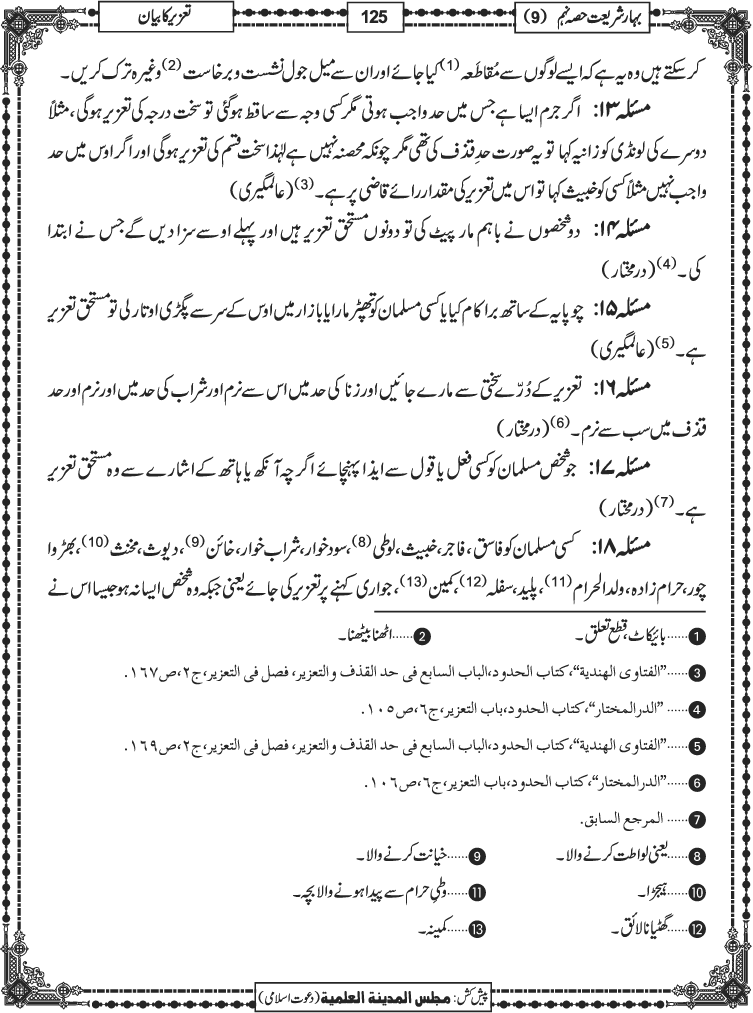 بہار شریعت حصہ نہم (9)
125
تعزیر کا بیان
کر سکتے ہیں وہ یہ ہے کہ ایسے لوگوں سے مُقاطَعہ (1) کیا جائے اور ان سے میل جول نشست و برخاست (2) وغیرہ ترک کریں۔
مسئلہ ۱۳: اگر جرم ایسا ہے جس میں حد واجب ہوتی مگر کسی وجہ سے ساقط ہو گئی تو سخت درجہ کی تعزیر ہوگی، مثلاً
دوسرے کی لونڈی کو زانیہ کہا تو یہ صورت حدِ قذف کی تھی مگر چونکہ محصنہ نہیں ہے لہٰذا سخت قسم کی تعزیر ہوگی اور اگر اوس میں حد
واجب نہیں مثلاً کسی کو خبیث کہا تو اس میں تعزیر کی مقدار رائے قاضی پر ہے۔ (3) (عالمگیری)
مسئلہ ۱۴: دو شخصوں نے باہم مار پیٹ کی تو دونوں مستحق تعزیر ہیں اور پہلے اوسے سزا دیں گے جس نے ابتدا
کی۔ (4) (درمختار)
مسئلہ ۱۵: چوپایہ کے ساتھ برا کام کیا یا کسی مسلمان کو تھپڑ مارا یا بازار میں اوس کے سر سے پگڑی اوتار لی تو مستحق تعزیر
ہے۔ (5) (عالمگیری)
مسئلہ ۱۶: تعزیر کے دُرّے سختی سے مارے جائیں اور زنا کی حد میں اس سے نرم اور شراب کی حد میں اور نرم اور حد
قذف میں سب سے نرم۔ (6) (درمختار)
مسئلہ ۱۷: جو شخص مسلمان کو کسی فعل یا قول سے ایذا پہنچائے اگرچہ آنکھ یا ہاتھ کے اشارے سے وہ مستحق تعزیر
ہے۔ (7) (درمختار)
مسئلہ ۱۸: کسی مسلمان کو فاسق، فاجر، خبیث، لوطی (8)، سودخوار، شراب خوار، خائن (9)، دیوث، مخنث (10)، بھڑوا
چور، حرام زادہ، ولدالحرام (11)، پلید، سفلہ (12)، کمین (13)، جواری کہنے پر تعزیر کی جائے یعنی جبکہ وہ شخص ایسا نہ ہو جیسا اس نے
1 ......بائیکاٹ، قطع تعلق۔ 2 ......اٹھنا بیٹھنا۔
3 ......"الفتاوى الهندية"، كتاب الحدود، الباب السابع في حد القذف والتعزير، فصل في التعزير، ج٢، ص١٦٧.
4 ......"الدرالمختار"، كتاب الحدود، باب التعزير، ج٦، ص١٠٥.
5 ......"الفتاوى الهندية"، كتاب الحدود، الباب السابع في حد القذف والتعزير، فصل في التعزير، ج٢، ص١٦٩.
6 ......"الدرالمختار"، كتاب الحدود، باب التعزير، ج٦، ص١٠٦.
7 ......المرجع السابق.
8 ......یعنی لواطت کرنے والا۔ 9 ......خیانت کرنے والا۔
10 ......ہیجڑا۔ 11 ......وطیِ حرام سے پیدا ہونے والا بچہ۔
12 ......گھٹیا نالائق۔ 13 ......کمینہ۔
پیش کش: مجلس المدینة العلمیة (دعوت اسلامی)